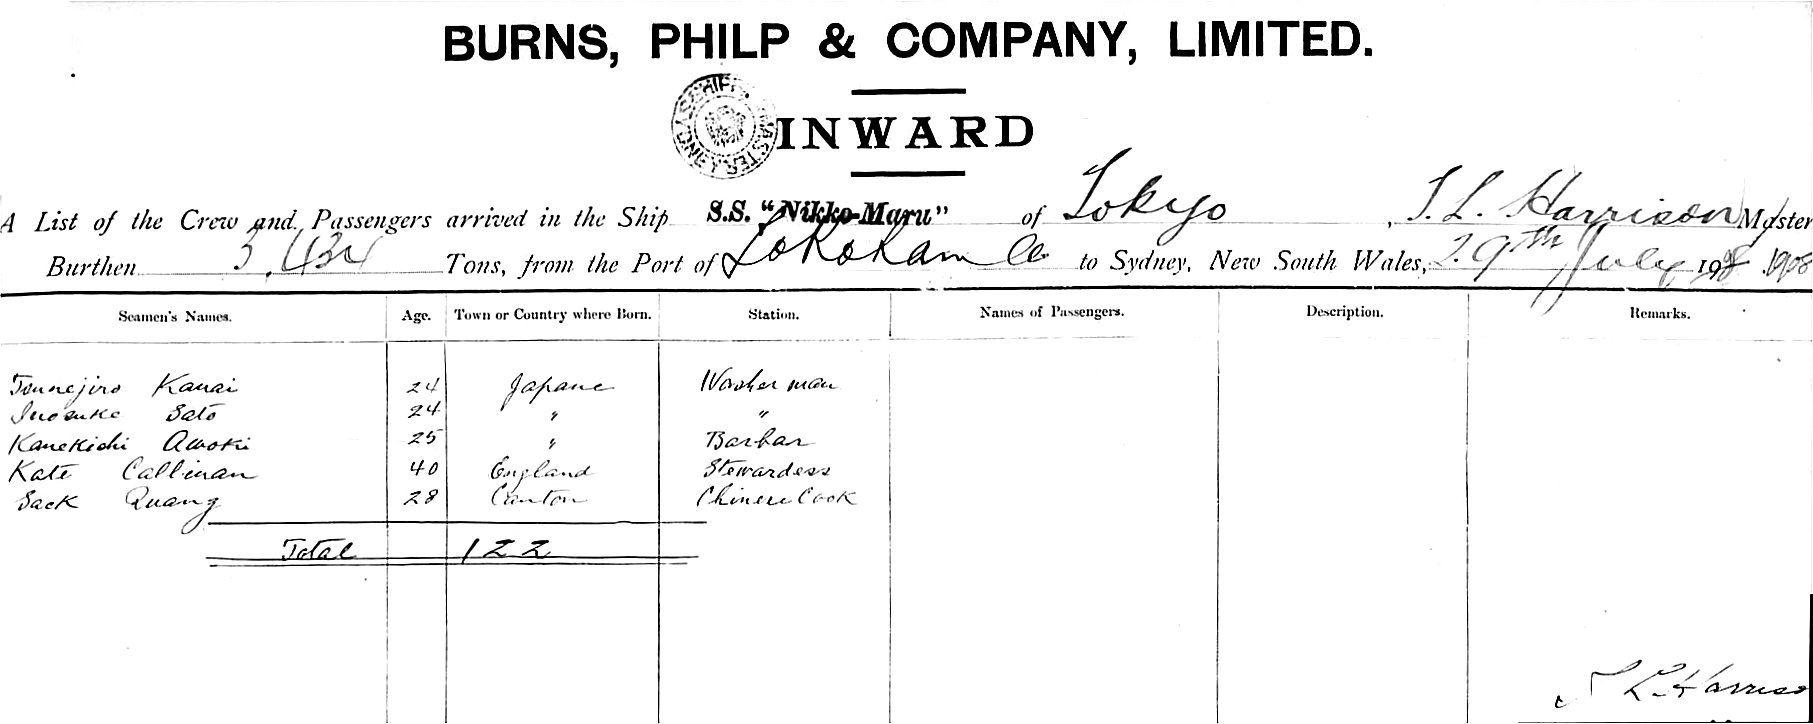 BURNS, PHILP & COMPANY, LIMITED.
SHIPPING MASTER SYDNEY
INWARD
A List of the Crew and Passengers arrived in the Ship S.S. "Nikko-Maru" of Tokyo, T. L. Harrison Master
Burthen 3,434 Tons, from the Port of Yokohama to Sydney, New South Wales, 29th July 1908
Seamen's Names. Age. Town or Country where Born. Station. Names of Passengers. Description. Remarks.
Tsunejiro Kanai 24 Japane Washerman
Inosuke Sato 24 " "
Kanekichi Awoki 25 " Barbar
Kate Callinan 40 England Stewardess
Sack Quang 28 Canton Chinese Cook
Total 122
T L Harriso